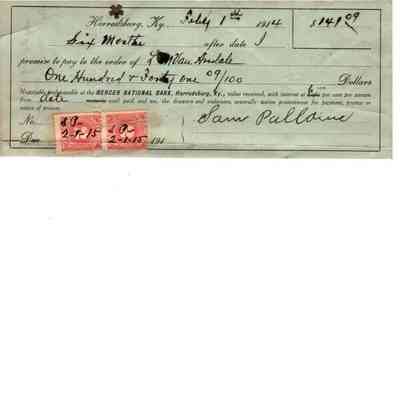 Harrodsburg, Ky. Feby 1st 1914 $141 09
Six Months after date I
promise to pay to the order of Van Arsdale
One Hundred & Forty one 09/100 Dollars
Negotiable and payable at the MERCER NATIONAL BANK, Harrodsburg, Ky., value received, with interest at per cent per annum
from date until paid, and we, the drawers and endorsers, severally waive presentment for payment, protest or
notice of protest.
No. Sam
Due 191
S P- S P-
2-1-15 2-1-15